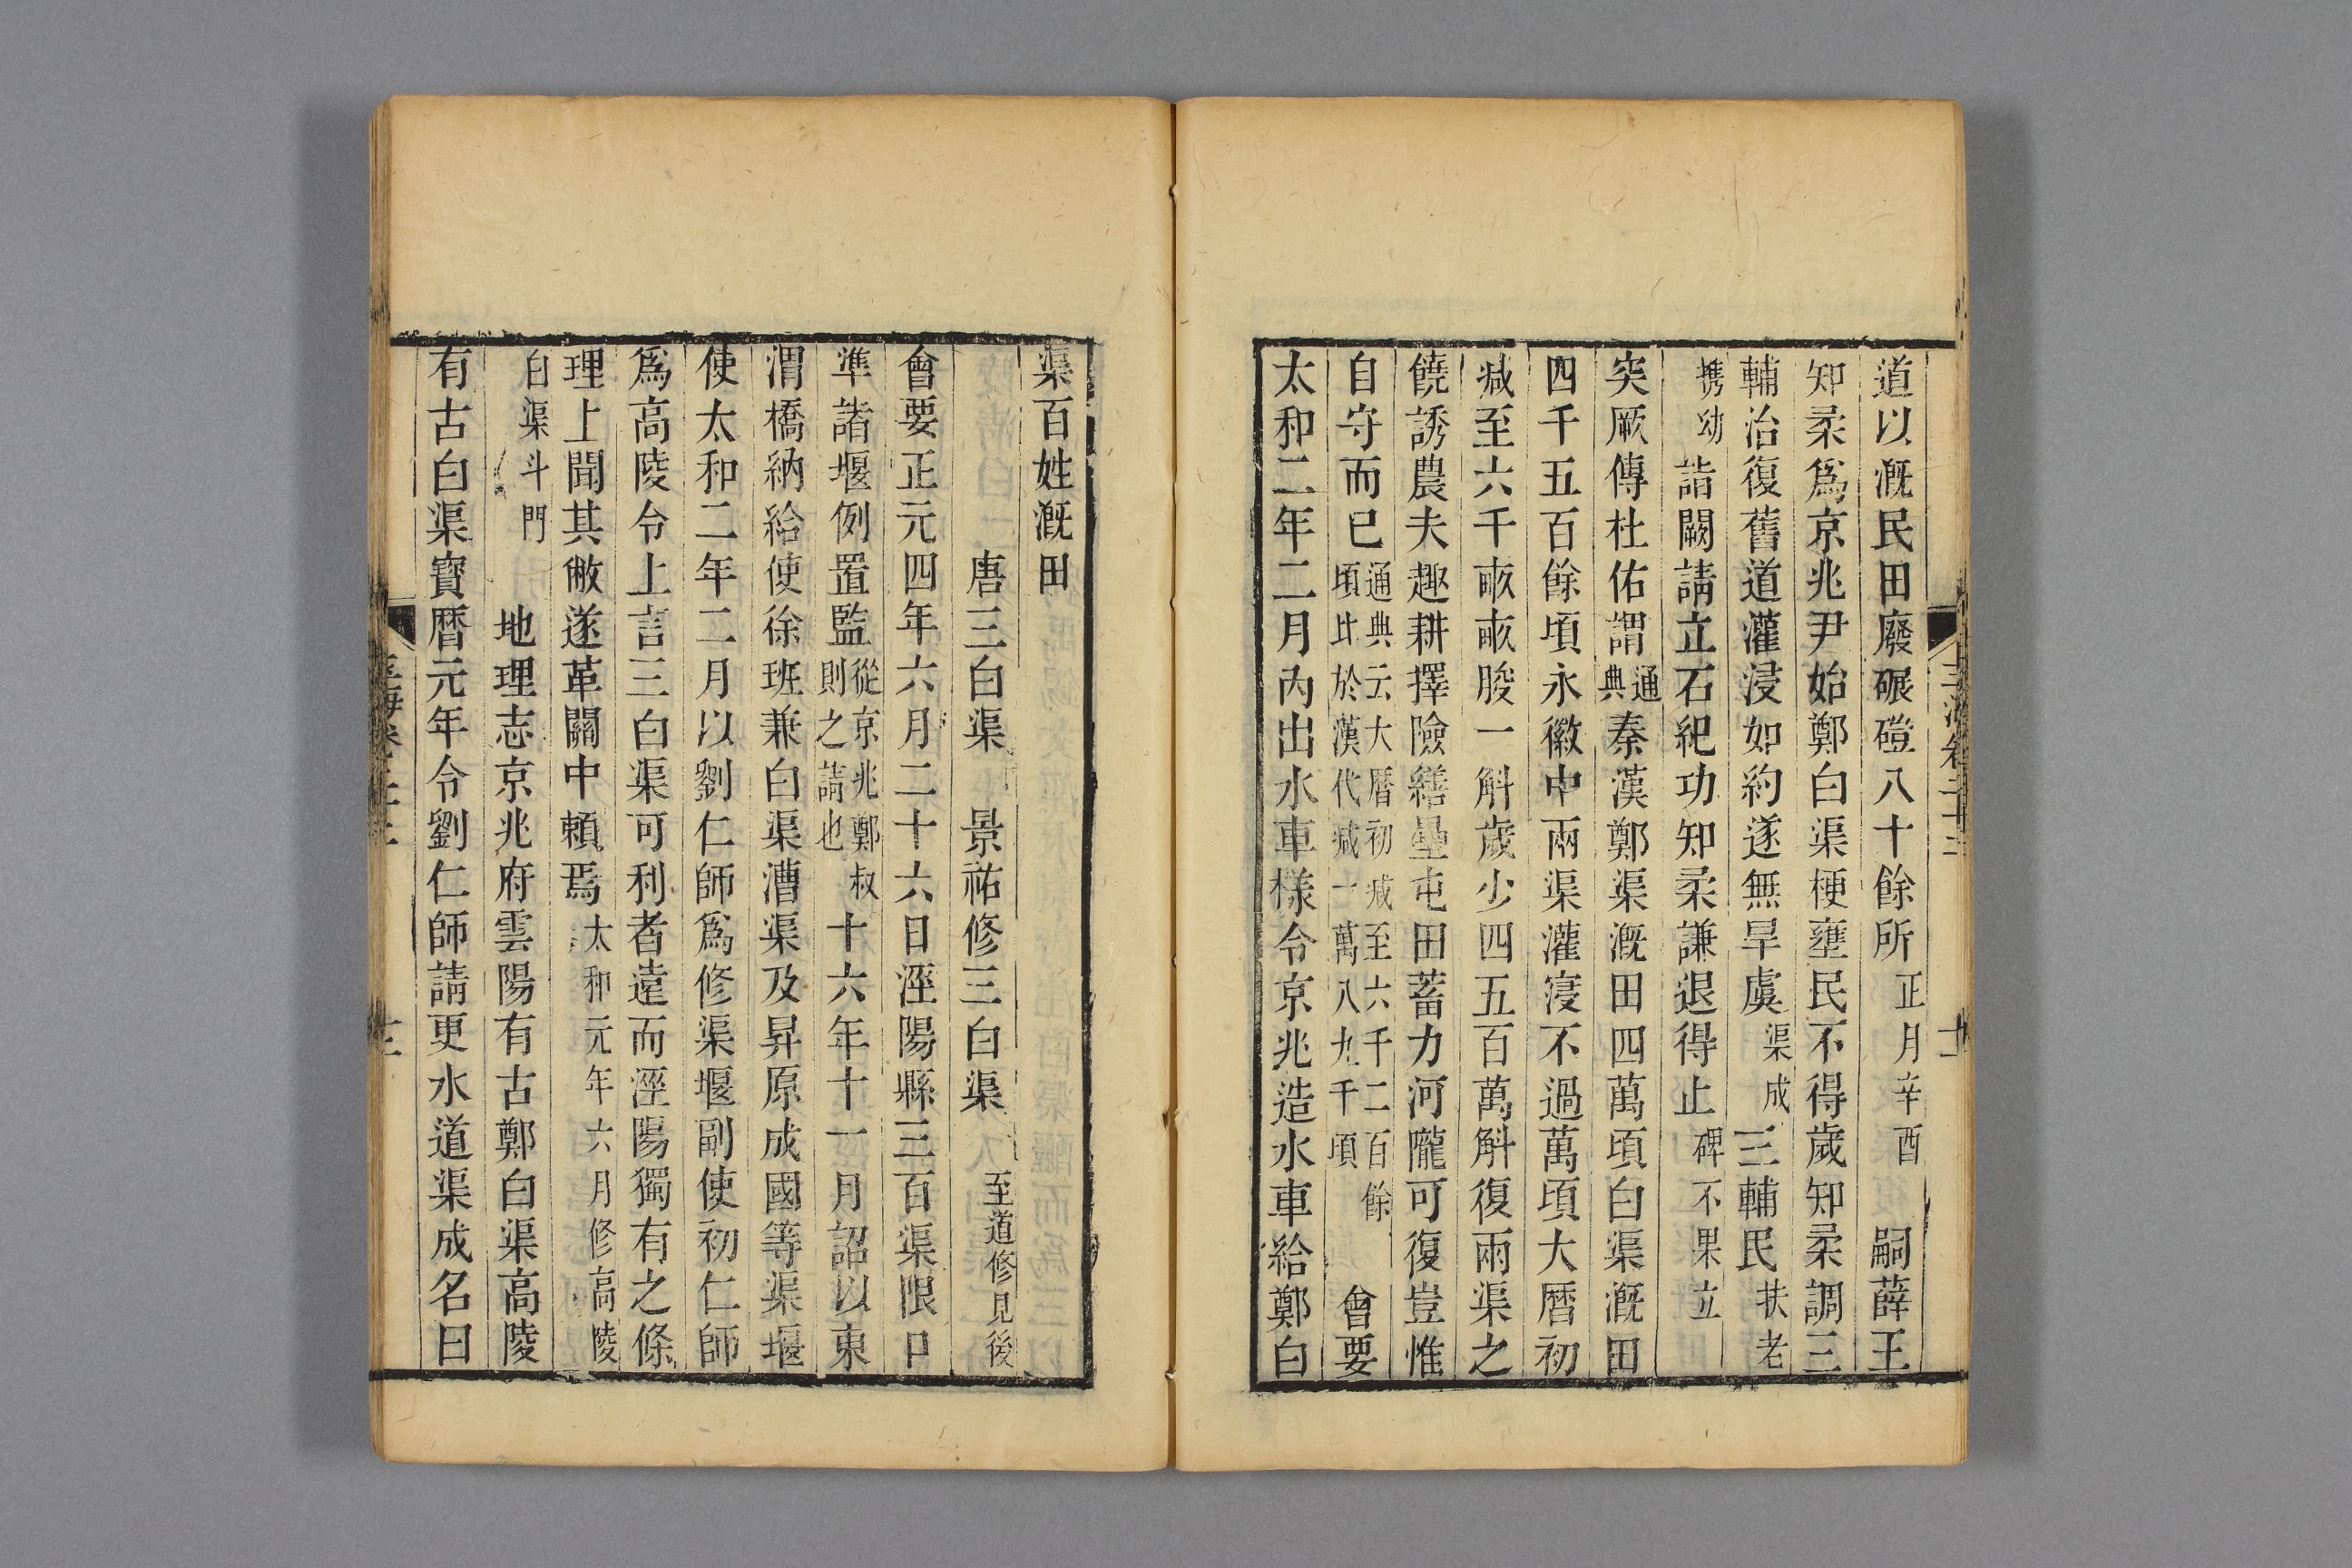 道以漑民田廢碾磑八十餘所正月辛酉嗣薛王
知柔爲京兆尹始鄭白渠梗壅民不得歲知柔調三
輔治復舊道灌浸如約遂無旱虞渠成三輔民扶老
携幼詣闕請立石紀功知柔謙退得止碑不果立
突厥傳杜佑謂通典秦漢鄭渠漑田四萬頃白渠漑田
四千五百餘頃永徽中兩渠灌寖不過萬頃大曆初
减至六千畝畝朘一斛歲少四五百萬斛復兩渠之
饒誘農夫趣耕擇險繕壘屯田蓄力河隴可復豈惟
自守而已通典云大曆初减至六千二百餘頃比於漢代减一萬八九千頃會要
太和二年二月內出水車樣令京兆造水車給鄭白
渠百姓漑田
唐三白渠景祐修三白渠至道修見後
會要正元四年六月二十六日涇陽縣三百渠限口
準諸堰例置監從京兆鄭叔則之請也十六年十一月詔以東
渭橋納給使徐班兼白渠漕渠及昇原成國等渠堰
使太和二年二月以劉仁師爲修渠堰副使初仁師
爲高陵令上言三白渠可利者遠而涇陽獨有之條
理上聞其敝遂革關中賴焉太和元年六月修高陵
白渠斗門地理志京兆府雲陽有古鄭白渠高陵
有古白渠寶曆元年令劉仁師請更水道渠成名曰